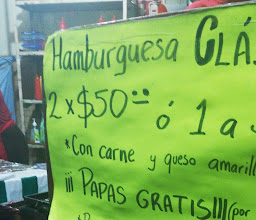 Hamburguesa CLÁ
2x$50 ó 1 a
*Con carne y queso amarill
¡¡¡ PAPAS GRATIS!!! (por